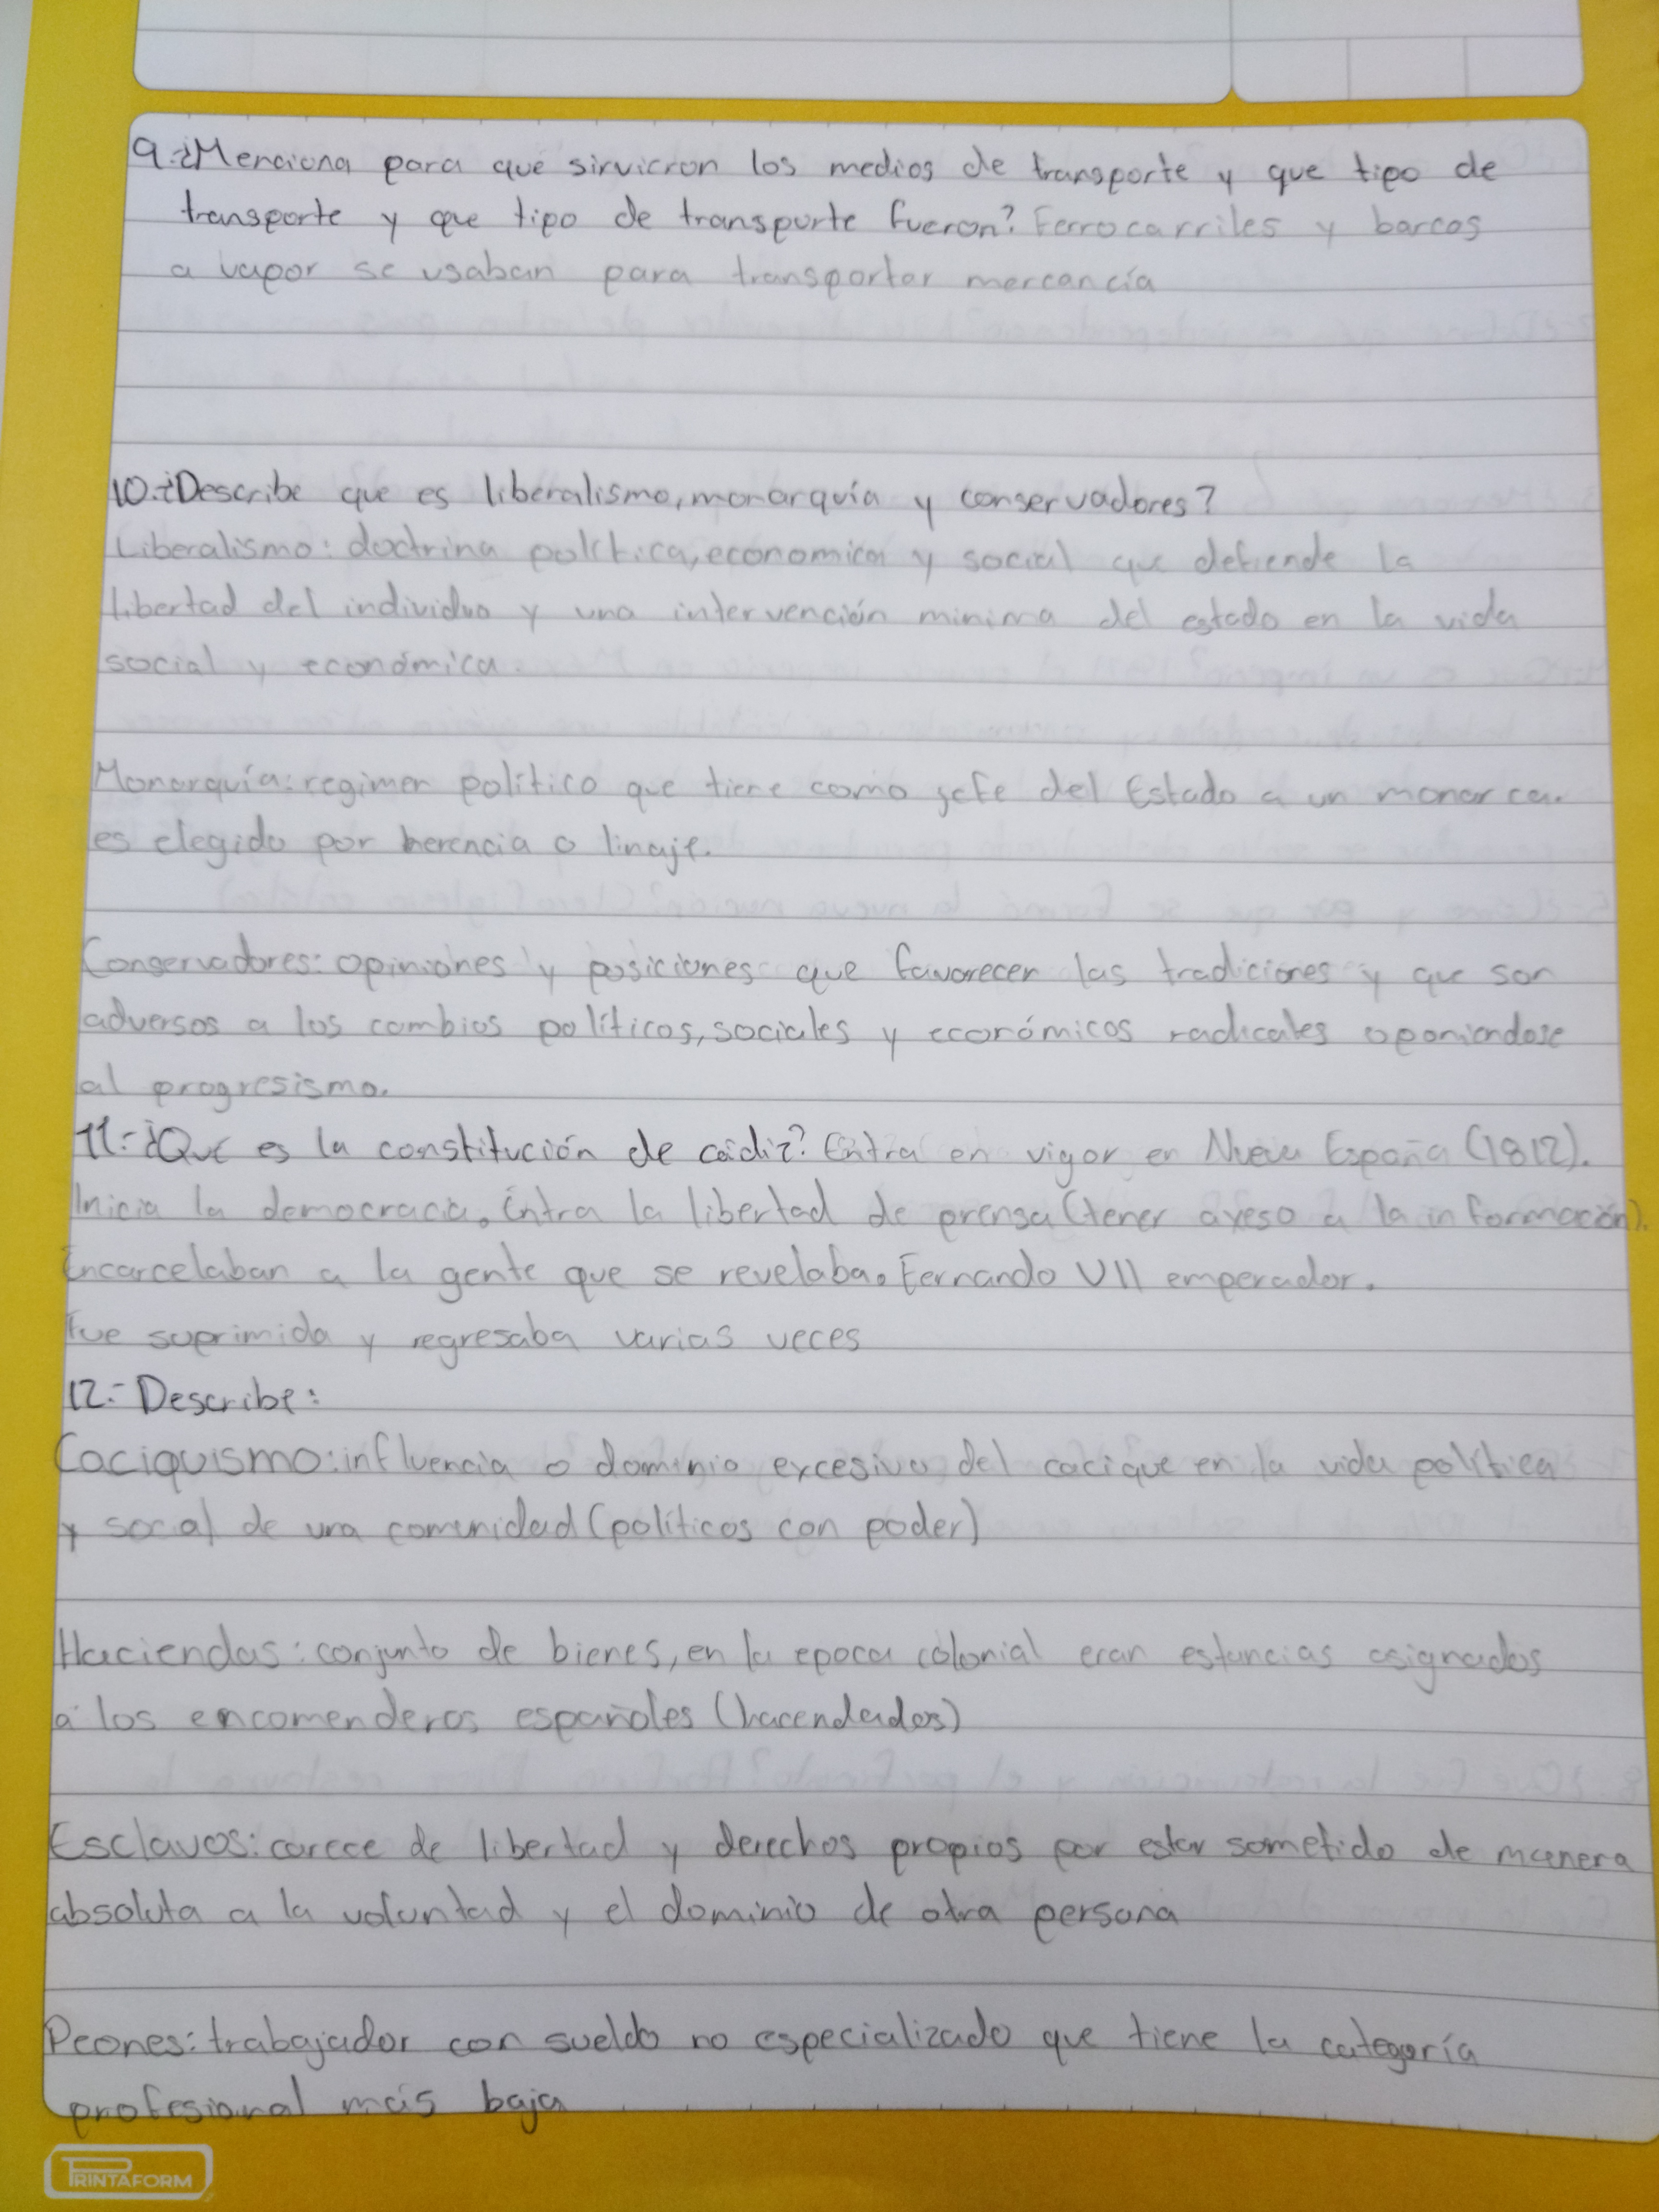 9.-¿Menciona para que sirvieron los medios de transporte y que tipo de
transporte y que tipo de transporte fueron? Ferrocarriles y barcos
a vapor se usaban para transportar mercancía
10.-¿Describe que es liberalismo, monarquía y conservadores?
Liberalismo: doctrina política, economica y social que defiende la
libertad del individuo y una intervención minima del estado en la vida
social y económica.
Monarquía: regimen político que tiene como jefe del Estado a un monarca.
es elegido por herencia o linaje.
Conservadores: opiniones y posiciones que favorecen las tradiciones y que son
adversos a los cambios políticos, sociales y económicos radicales oponiendose
al progresismo.
11.-¿Que es la constitución de cádiz? Entra en vigor en Nueva España (1812).
Inicia la democracia. Entra la libertad de prensa (tener axeso a la información).
Encarcelaban a la gente que se revelaba. Fernando VII emperador.
Fue suprimida y regresaba varias veces
12.- Describe:
Caciquismo: influencia o dominio excesivo del cacique en la vida política
y social de una comunidad (políticos con poder)
Haciendas: conjunto de bienes, en la epoca colonial eran estancias asignados
a los encomenderos españoles (hacendados)
Esclavos: carece de libertad y derechos propios por estar sometido de manera
absoluta a la voluntad y el dominio de otra persona
Peones: trabajador con sueldo no especializado que tiene la categoría
profesional más baja
PRINTAFORM